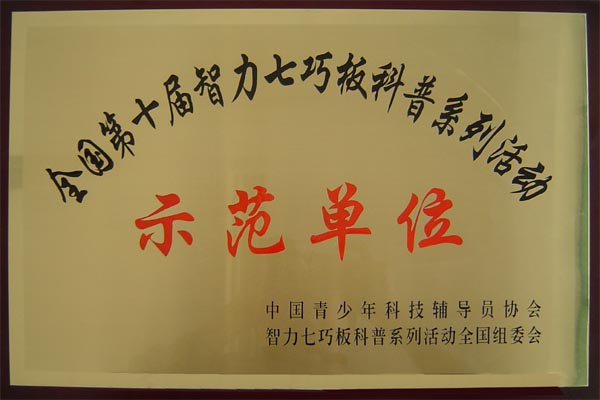 全国第十届智力七巧板科普系列活动
示范单位
中国青少年科技辅导员协会
智力七巧板科普系列活动全国组委会